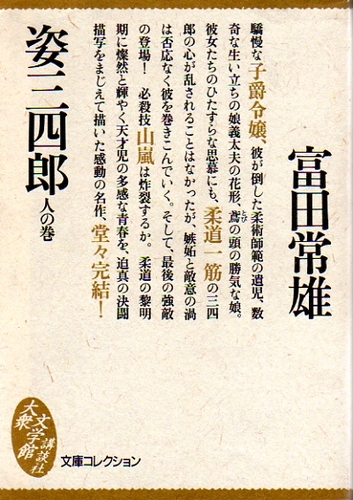 富田常雄
驕慢な子爵令嬢、彼が倒した柔術師範の遺児、数
奇な生い立ちの娘義太夫の花形、鳶の頭の勝気な娘。
彼女たちのひたすらな思慕にも、柔道一筋の三四
郎の心が乱されることはなかったが、嫉妬と敵意の渦
は否応なく彼を巻きこんでいく。そして、最後の強敵
の登場! 必殺技山嵐は炸裂するか。柔道の黎明
期に燦然と輝やく天才児の多感な青春を、迫真の決闘
描写をまじえて描いた感動の名作、堂々完結!
姿三四郎
人の巻
大衆
文学館
講談社
文庫コレクション